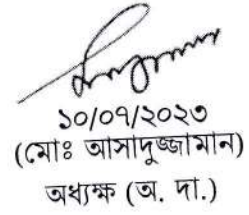 ১০/০৭/২০২৩
(মোঃ আসাদুজ্জামান)
অধ্যক্ষ (অ. দা.)